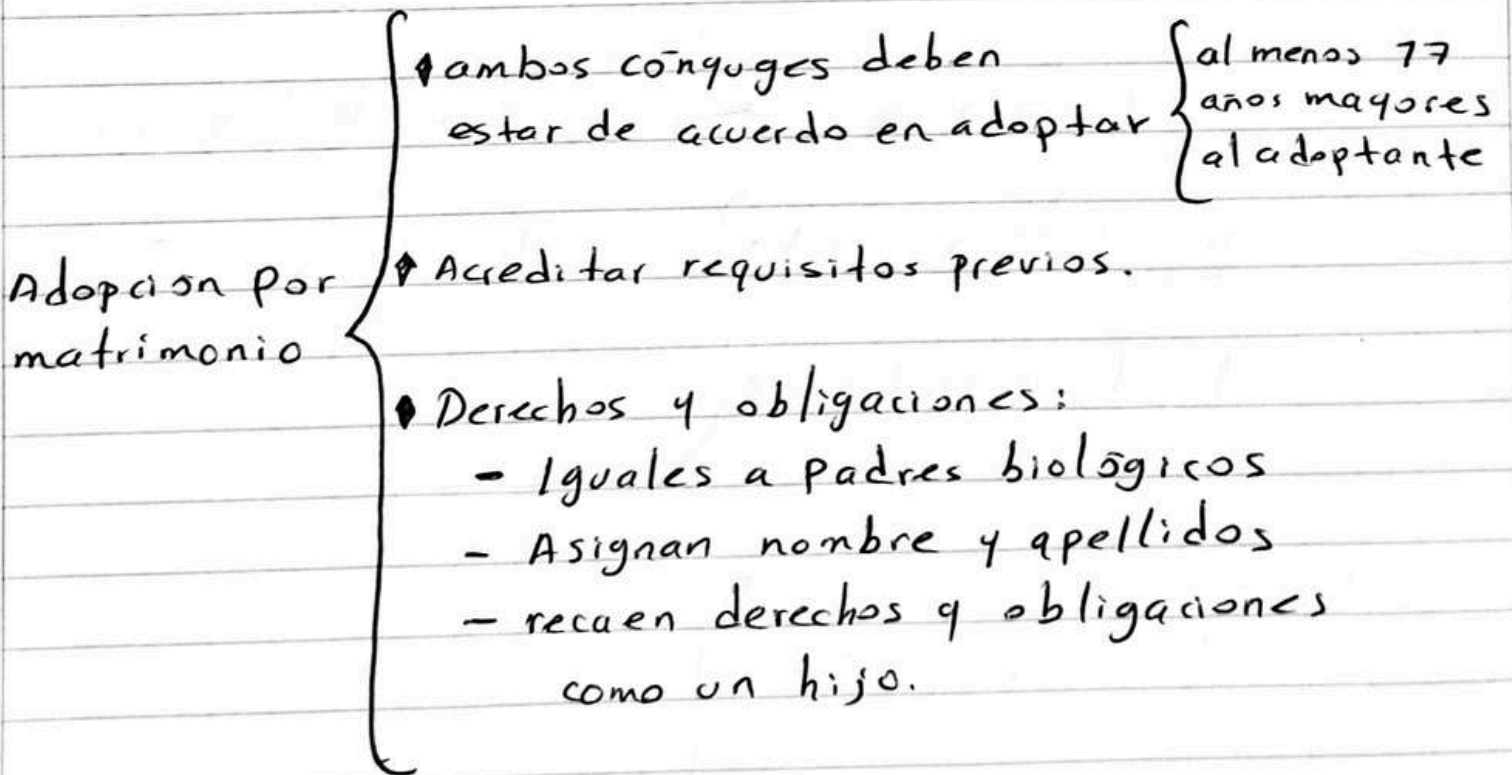 ambos cónyuges deben
estar de acuerdo en adoptar
al menos 17
años mayores
al adoptante
Adopción por
matrimonio
Acreditar requisitos previos.
Derechos y obligaciones:
- Iguales a padres biológicos
- Asignan nombre y apellidos
- recaen derechos y obligaciones
como un hijo.